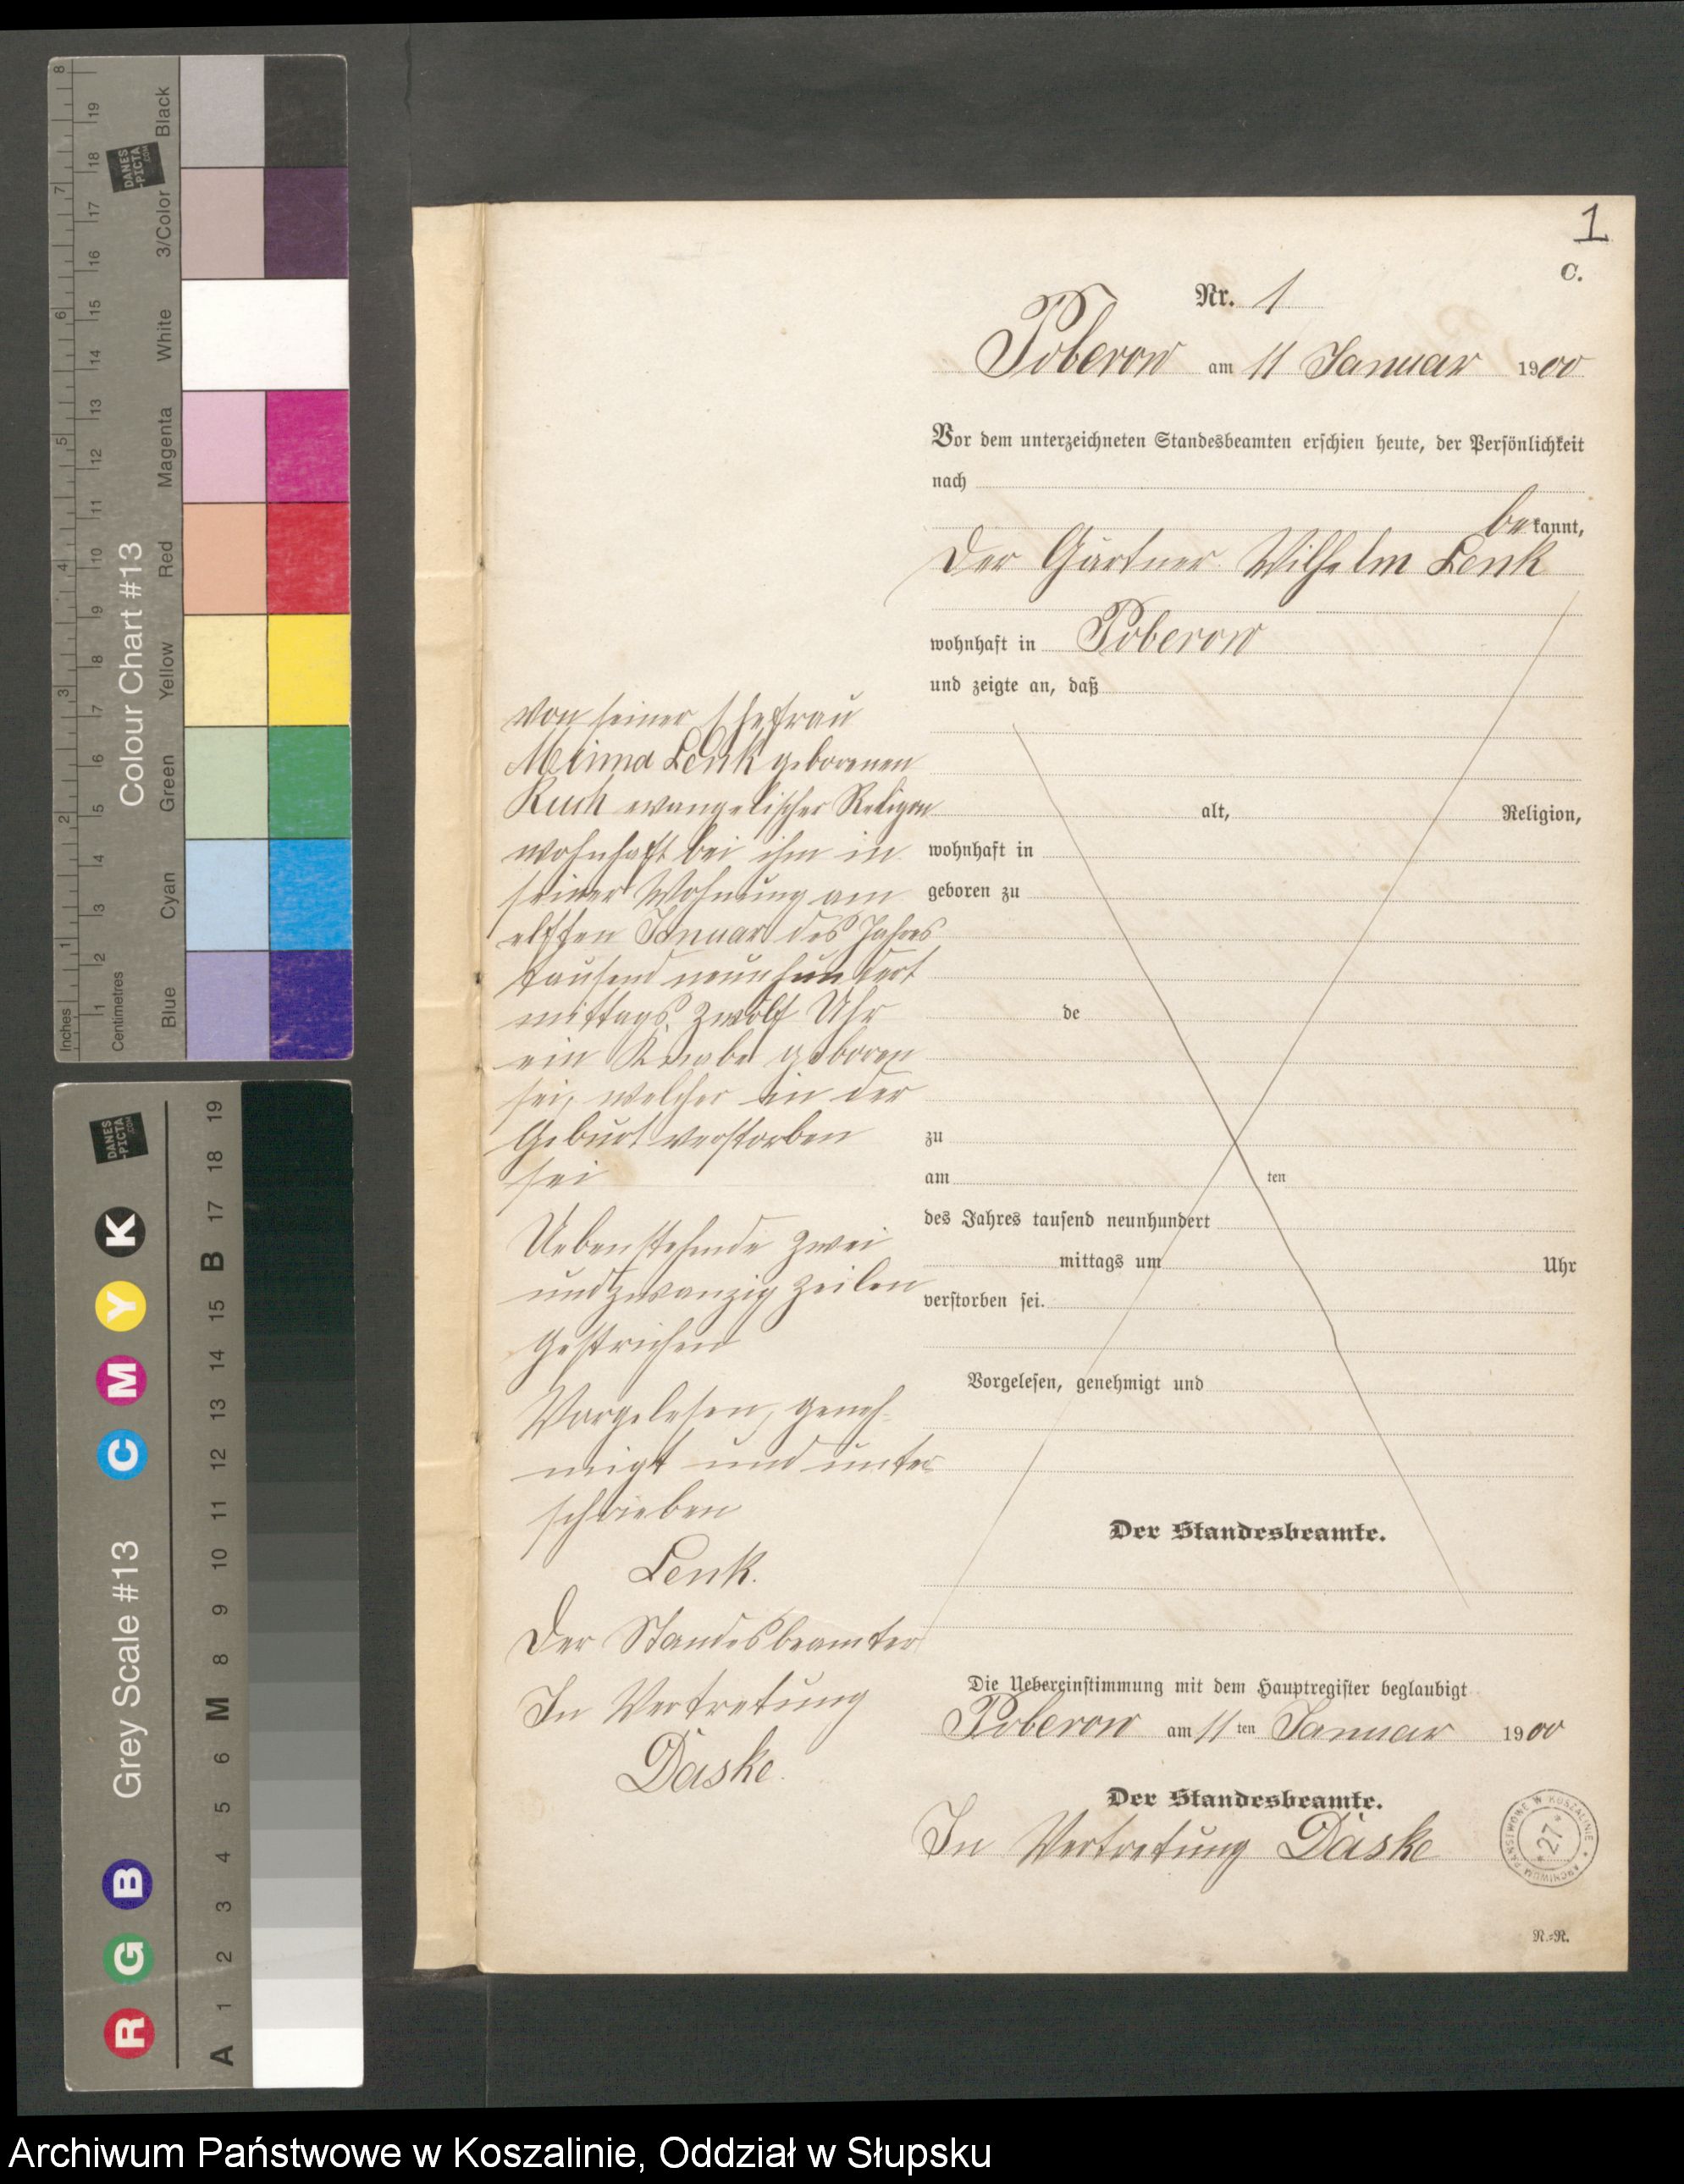 1
C.
Nr. 1
Poberow am 11 Januar 1900
Vor dem unterzeichneten Standesbeamten erschien heute, der Persönlichkeit
nach
be kannt,
der Gärtner Wilhelm Lenk
wohnhaft in Poberow
und zeigte an, daß
von seiner Ehefrau
Minna Lenk geborenen
evangelischer Religion
wohnhaft bei ihm in
seiner Wohnung am
elften Januar des Jahres
tausend neunhundert
mittags zwölf Uhr
ein Knabe geboren
sei, welcher in der
Geburt verstorben
sei
Uebenstehende zwei
und zwanzig Zeilen
gestrichen
Vorgelesen, geneh-
migt und unter
schrieben
Lenk.
Der Standesbeamter
In Vertretung
Däske.
alt, Religion,
wohnhaft in
geboren zu
de
zu
am ten
des Jahres tausend neunhundert
mittags um Uhr
verstorben sei.
Vorgelesen, genehmigt und
Der Standesbeamte.
Die Uebereinstimmung mit dem Hauptregister beglaubigt
Poberow am 11 ten Januar 1900
Der Standesbeamte.
In Vertretung Däske
ARCHIWUM PAŃSTWOWE W KOSZALINIE
*27*
R.=R.
Inches 1 2 3 4 5 6 7 8
Centimetres 1 2 3 4 5 6 7 8 9 10 11 12 13 14 15 16 17 18 19
Colour Chart #13
DANES
-PICTA
.COM
Blue Cyan Green Yellow Red Magenta White 3/Color Black
Grey Scale #13
DANES
-PICTA
.COM
R G B C M Y K
A 1 2 3 4 5 6 M 8 9 10 11 12 13 14 15 B 17 18 19
Archiwum Państwowe w Koszalinie, Oddział w Słupsku